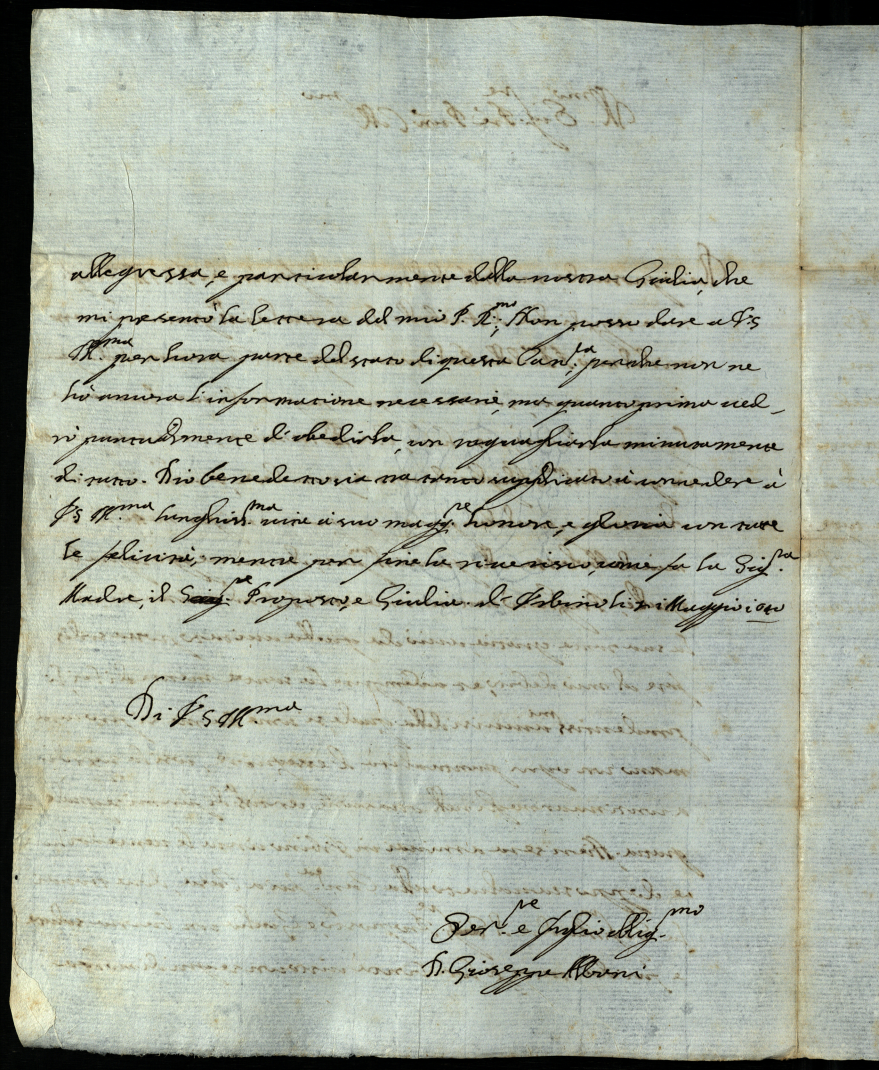 allegressa, e particularmente della nostra Giulia, che
mi presentò la lettera del mio P. R.mo; Non posso dare a V S
Ill.ma per hora parte del stato di questa Can.ta, perche non ne
hò ancora l'informatione necessarie, ma quanto prima ved-
rò puntualmente d'obedirla, con raguagliarla minutamente
di tutto. Dio benedetto sia tra tanto supplicato à concedere à
V S Ill.ma lunghiss.ma vita à suo magg.re honore, e gloria con tutte
le felicità; mentre per fine la riverisco, come fa la Sig.ra
Madre, il Proposto, e Giulia. d'Urbino li Maggio
Di V S Ill.ma
Ser.re e figlio oblig.mo
D. Gioseppe Albani